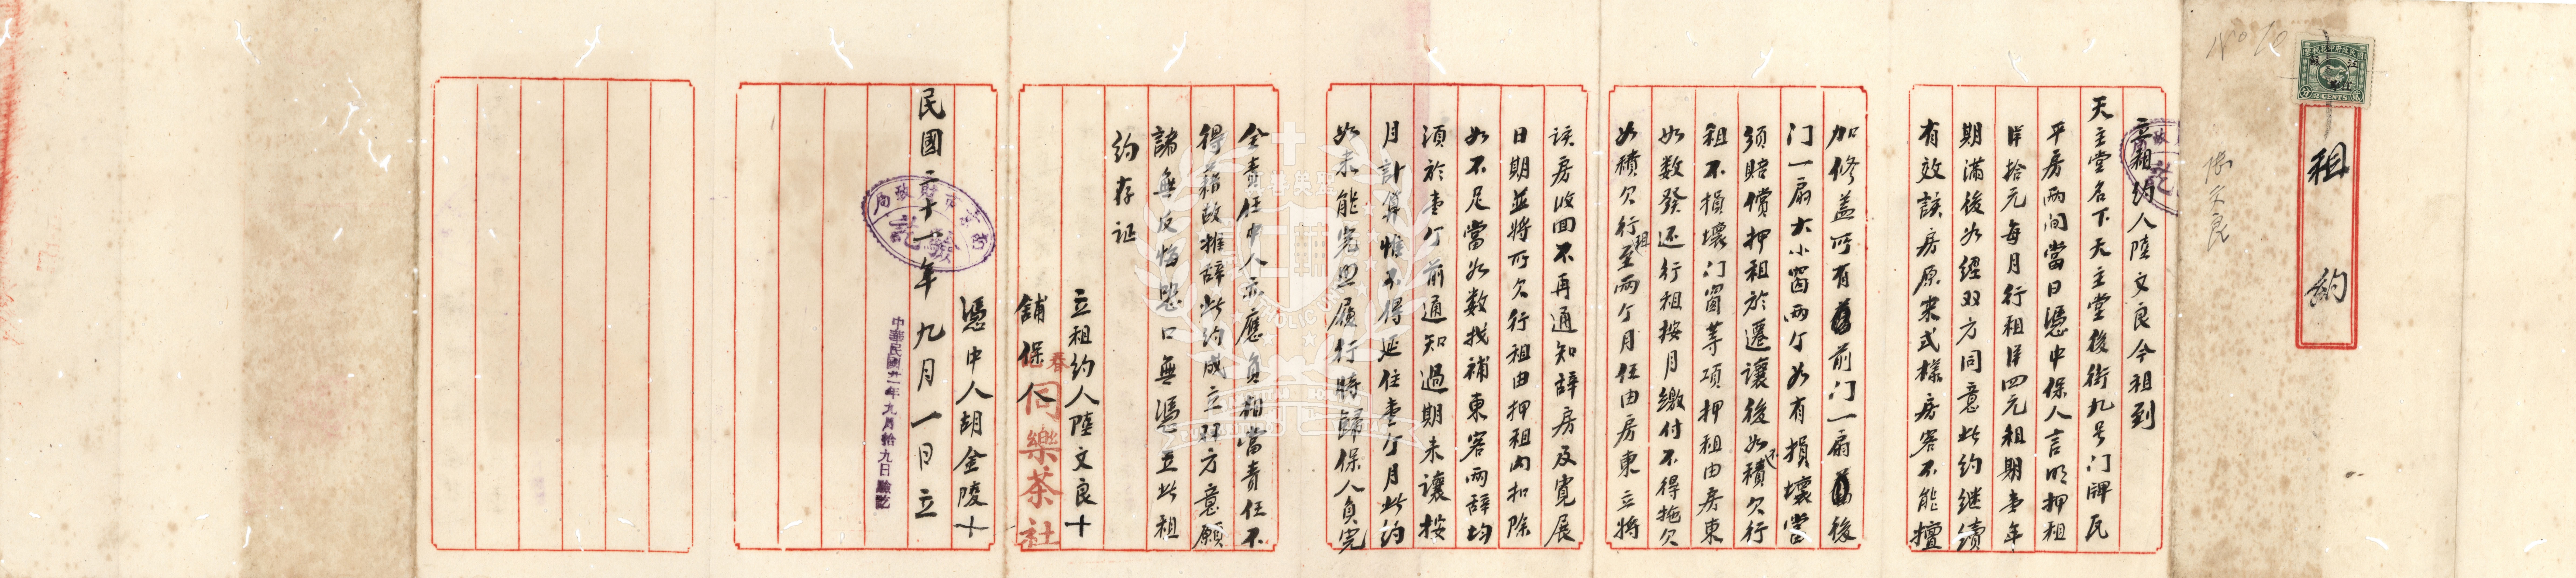 租約
張文良
立租約人陸文良今租到
天主堂名下天主堂後街九号门牌瓦
平房兩间當日憑中保人言明押租
洋拾元每月行租洋四元租期壹年
期滿後如經双方同意此约继續
有效該房原来式樣房客不能擅
加修盖所有前门一扇後
门一扇大小窗两个如有損壞當
须賠償押租於遷讓後如不積欠行
租不損壞门窗等項押租由房東
如数發还行租按月繳付不得拖欠
如積欠行租至兩个月任由房東立將
該房收回不再通知辞房及寬展
日期並將所欠行租由押租内扣除
如不足當如数找補東客兩辞均
須於壹个前通知過期未讓按
月計算惟不得延住壹个月此约
如未能完思履行將歸保人負完
全責任中人亦應負相當責任不
得藉故推辞此约成立双方意願
諸無反悔恐口無憑立此租
约存证
立租约人陸文良十
舖保人
春同樂茶社
憑中人胡金陵十
民國二十一年九月一日立
財政局
驗訖
中華民國廿一年九月拾九日驗訖